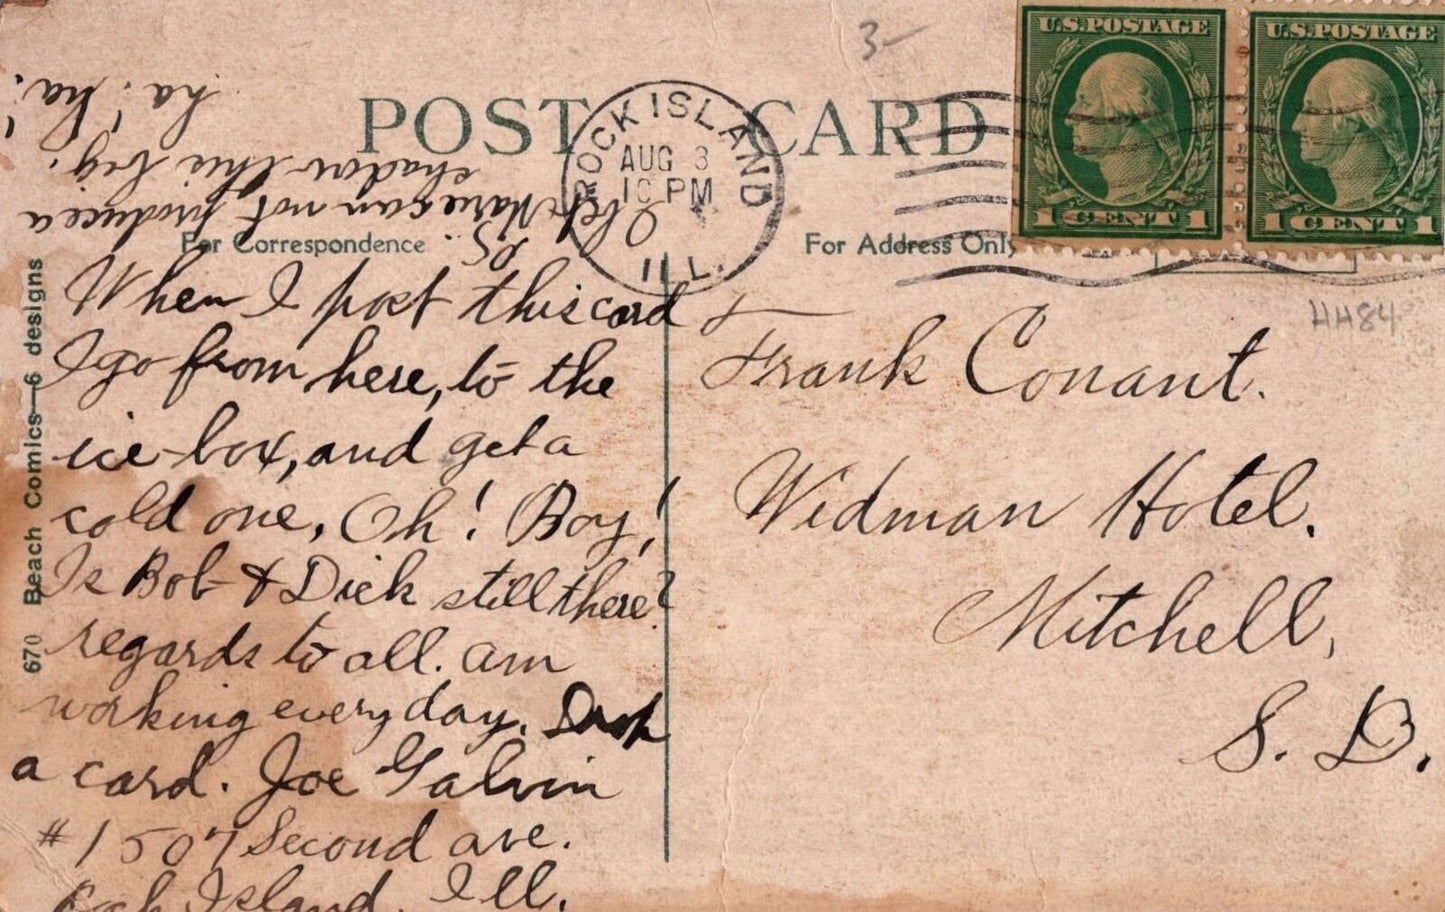 3-
U.S. POSTAGE
U.S. POSTAGE
1 CENT 1
1 CENT 1
POST CARD
ROCK ISLAND
AUG 3
10 PM
ILL.
For Correspondence
For Address Only
HH84
When I post this card
I go from here, to the
ice-box, and get a
cold one, Oh! Boy!
Is Bob & Dick still there?
regards to all. am
working every day. Drop
a card. Joe Galvin
#1507 Second ave.
Rock Island. Ill.
P.S.
I bet Marie can not produce a
shadow this big.
ha! ha! ha!
Frank Conant.
Widman Hotel.
Mitchell,
S. D.
670 Beach Comics—6 designs